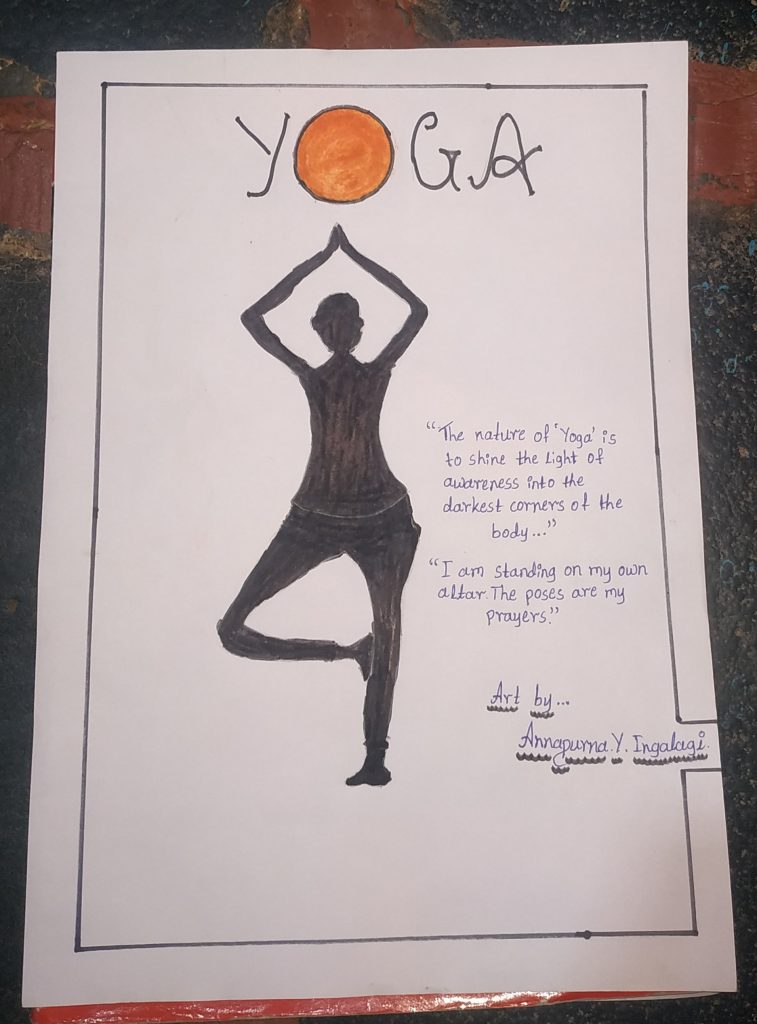 YOGA
"The nature of 'Yoga' is
to shine the Light of
awareness into the
darkest corners of the
body..."
"I am standing on my own
altar. The poses are my
prayers."
Art by...
Annapurna.Y. Ingalagi.